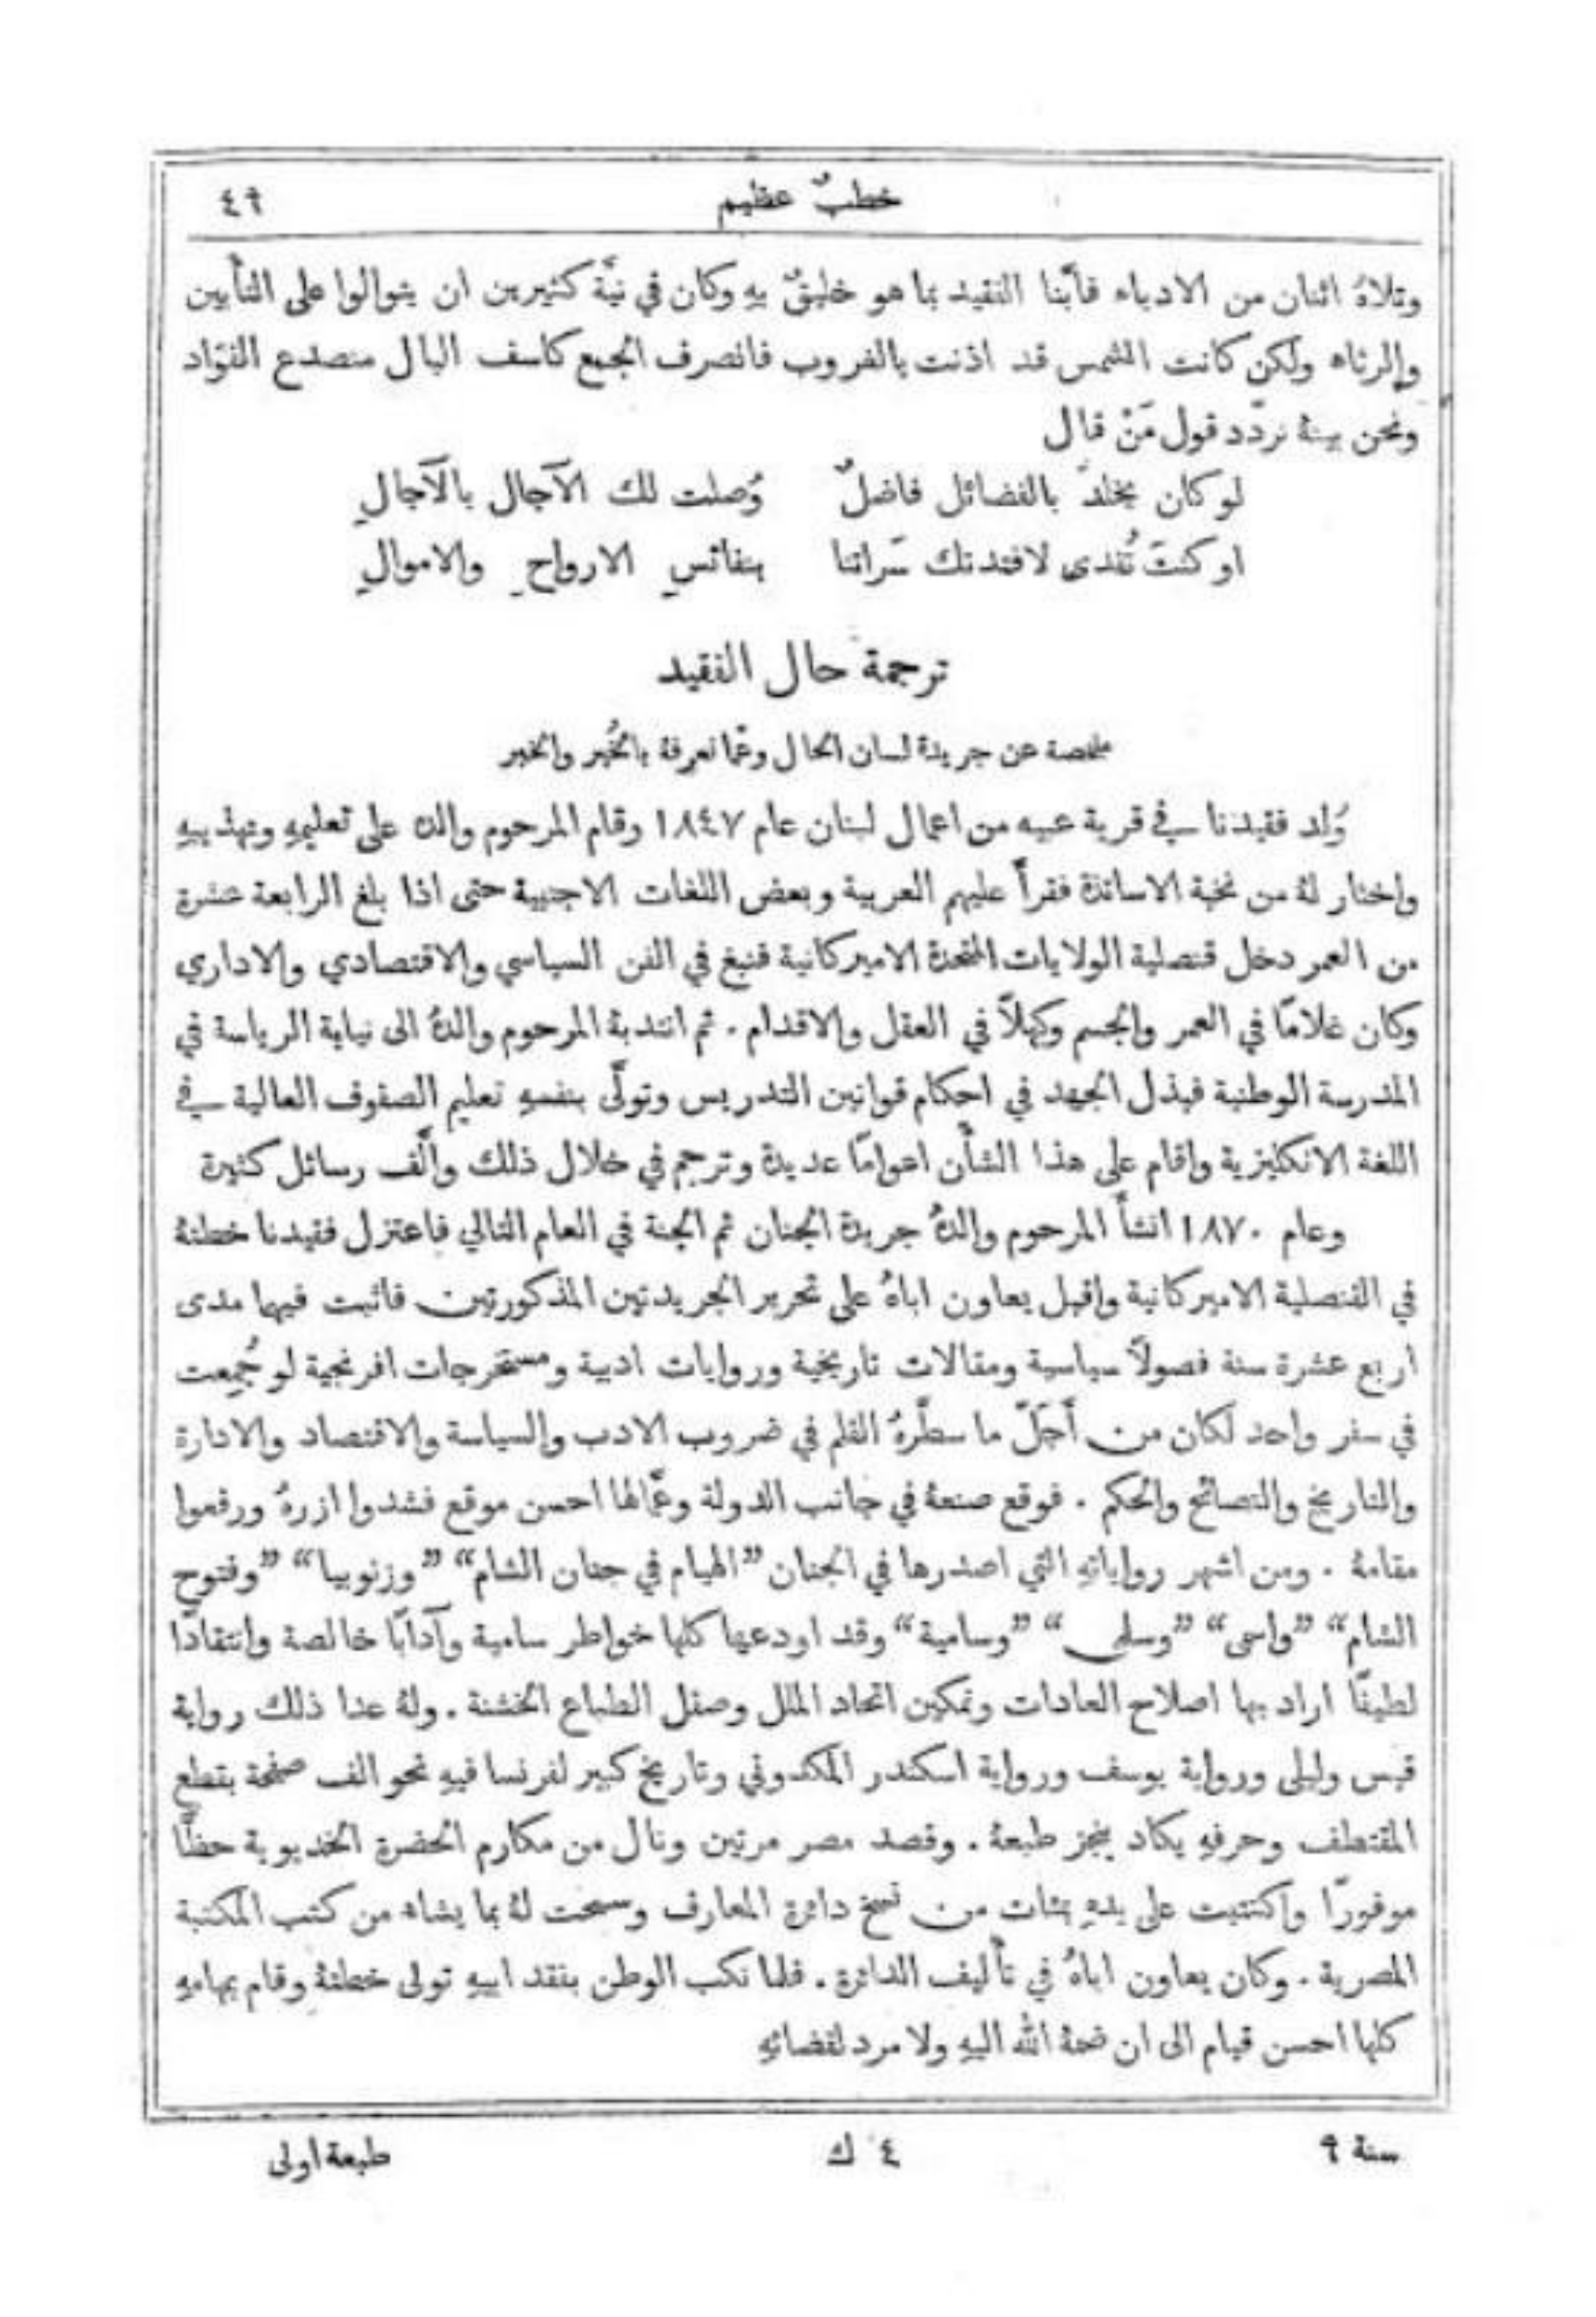 خطبٌ عظيم ٤٩
وتلاهُ اثنان من الادباء فأَبَّنا الفقيد بما هو خليقٌ بهِ وكان في نيَّة كثيرين ان يتوالوا على التأبين
والرثاء ولكن كانت الشمس قد اذنت بالغروب فانصرف الجمع كاسف البال منصدع الفؤاد
ونحن بينهُ نردّد قول مَنْ قال
لو كان يخلد بالفضائل فاضلٌ وُصلت لك الآجال بالآجالِ
او كنتَ تُفدى لافتدتك سَراتنا بنفائسِ الارواحِ والاموالِ
ترجمة حال الفقيد
ملخصة عن جريدة لسان الحال وعمَّا نعرفهُ بالخُبر والخبر
وُلد فقيدنا في قرية عبيه من اعمال لبنان عام ١٨٤٧ وقام المرحوم والدهُ على تعليمهِ وتهذيبهِ
واختار لهُ من نخبة الاساتذة فقرأَ عليهم العربية وبعض اللغات الاجنبية حتى اذا بلغ الرابعة عشرة
من العمر دخل قنصلية الولايات المتحدة الاميركانية فنبغ في الفن السياسي والاقتصادي والاداري
وكان غلامًا في العمر والجسم وكهلاً في العقل والاقدام . ثم انتدبهُ المرحوم والدهُ الى نيابة الرياسة في
المدرسة الوطنية فبذل الجهد في احكام قوانين التدريس وتولَّى بنفسهِ تعليم الصفوف العالية في
اللغة الانكليزية واقام على هذا الشأن اعوامًا عديدة وترجم في خلال ذلك وأَلَّف رسائل كثيرة
وعام ١٨٧٠ انشأَ المرحوم والدهُ جريدة الجنان ثم الجنة في العام التالي فاعتزل فقيدنا خطتهُ
في القنصلية الاميركانية واقبل يعاون اباهُ على تحرير الجريدتين المذكورتين فاثبت فيهما مدى
اربع عشرة سنة فصولاً سياسية ومقالات تاريخية وروايات ادبية ومستخرجات افرنجية لو جُمِعت
في سفر واحد لكان من أَجَلّ ما سطَّرهُ القلم في ضروب الادب والسياسة والاقتصاد والادارة
والتاريخ والنصائح والحكم . فوقع صنعهُ في جانب الدولة وعمَّالها احسن موقع فشدوا ازرهُ ورفعوا
مقامهُ . ومن اشهر رواياتهِ التي اصدرها في الجنان ”الهيام في جنان الشام“ ”وزنوبيا“ ”وفتوح
الشام“ ”واسمى“ ”وسلمى“ ”وسامية“ وقد اودعها كلها خواطر سامية وآدابًا خالصة وانتقادًا
لطيفًا اراد بها اصلاح العادات وتمكين اتحاد الملل وصقل الطباع الخشنة . ولهُ عدا ذلك رواية
قيس وليلى ورواية يوسف ورواية اسكندر المكدوني وتاريخ كبير لفرنسا فيهِ نحو الف صفحة بقطع
المقتطف وحرفهِ يكاد ينجز طبعهُ . وقصد مصر مرتين ونال من مكارم الحضرة الخديوية حظًّا
موفورًا واكتتبت على يدهِ بمئات من نسخ دائرة المعارف وسمحت لهُ بما يشاء من كتب المكتبة
المصرية . وكان يعاون اباهُ في تأليف الدائرة . فلما نكب الوطن بفقد ابيهِ تولى خطتهُ وقام بمهامهِ
كلها احسن قيام الى ان ضمهُ الله اليهِ ولا مرد لقضائهِ
سنة ٩ ٤ ك طبعة اولى